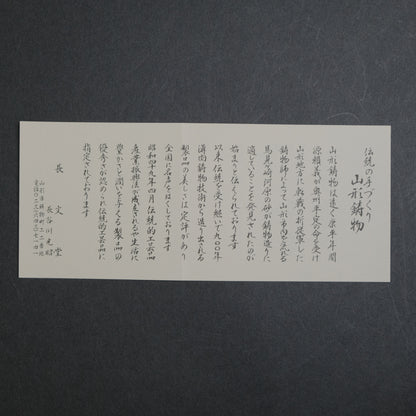 伝統の手づくり
山形鋳物
山形鋳物は遠く康平年間
源頼義が奥州平定の命を受け
山形地方に転戦の折従軍した
鋳物師によって山形市内を流れる
馬見ヶ崎河原の砂が鋳物造りに
適していることを発見されたのが
始まりと伝えられております
以来伝統を受け継いで九〇〇年
薄肉鋳物技術から造り出される
製品の美しさは定評があり
全国に名声をはくしております
昭和四十九年四月伝統的工芸品
産業振興法が成立されるや生活に
豊かさと潤いを与える製品の
優秀さが認められ伝統的工芸品に
指定されております
長文堂
長谷川光昭
山形市銅町